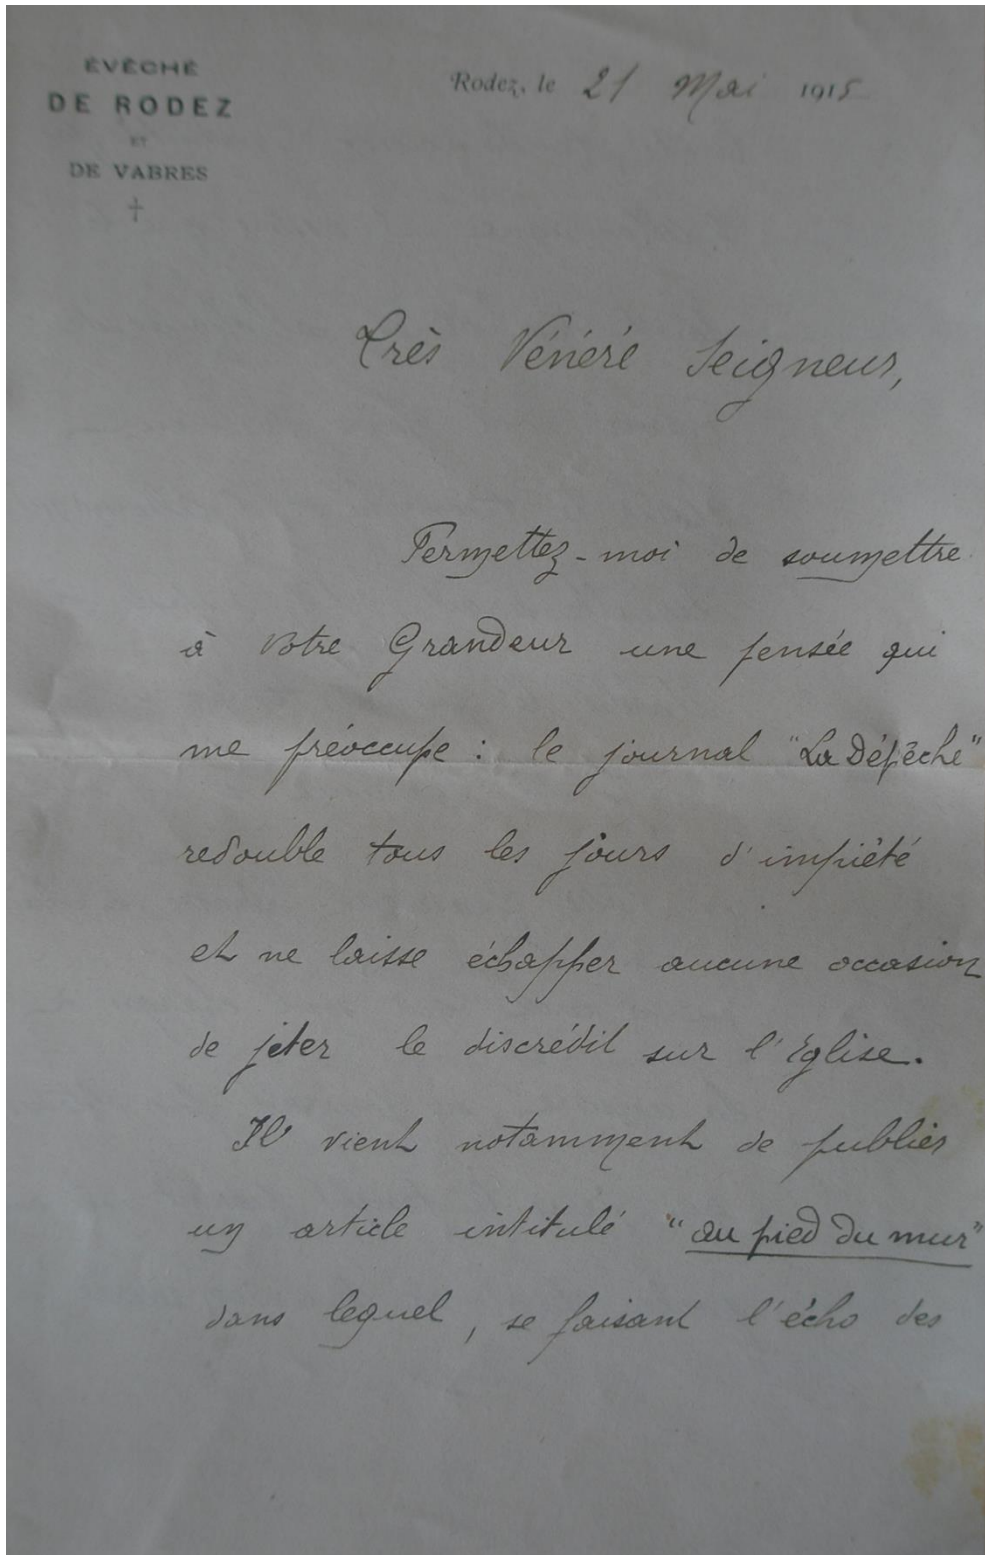 ÉVÊCHÉ
DE RODEZ
ET
DE VABRES
Rodez, le 21 Mai 1915
Très Vénéré Seigneur,
Permettez-moi de soumettre
à Votre Grandeur une pensée qui
me préoccupe : le journal "La Dépêche"
redouble tous les jours d'impiété
et ne laisse échapper aucune occasion
de jeter le discrédit sur l'Église.
Il vient notamment de publier
un article intitulé "au pied du mur"
dans lequel, se faisant l'écho des